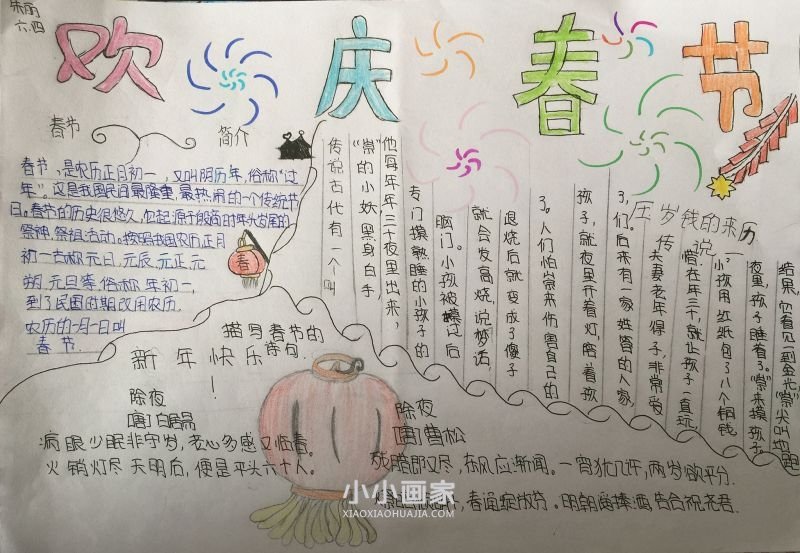 朱雨
六.四
欢庆春节
春节
简介
春节，是农历正月初一，又叫阴历年，俗称“过
年”。这是我国民间最隆重，最热闹的一个传统节
日。春节的历史很悠久，它起源于殷商时期年头岁尾的
祭神，祭祖活动。按照我国农历正月
初一古称元日，元辰，元正，元
朔，元旦等，俗称年初一，
到了民国时期改用农历，
农历的一月一日叫
春节
春
压岁钱的来历
传说
传说古代有一个叫
“祟”的小妖黑身白手，
他每年年三十夜里出来，
专门摸熟睡的小孩子的
脑门。小孩被摸过后
就会发高烧，说梦话，
退烧后就变成了傻子
了。人们怕祟来伤害自己的
孩子，就夜里开着灯陪着孩
子们。后来有一家姓管的人家，
夫妻老年得子，非常爱
在年三十，就让孩子一直玩
小孩用红纸包了八个铜钱
夜里，孩子睡着了。“祟”来摸孩子。
结果，它看见一到金光，“祟”尖叫地跑
描写春节的
诗句
新年快乐
！
除夜
[唐]白居易
病眼少眠非守岁，老心多感又临春。
火销灯尽天明后，便是平头六十人。
除夜
[唐]曹松
残腊即又尽，东风应渐闻。一宵犹几许，两岁欲平分
春通绽放芬。明朝遥捧酒，先合祝尧君.
小小画家
XIAOXIAOHUAJIA.COM